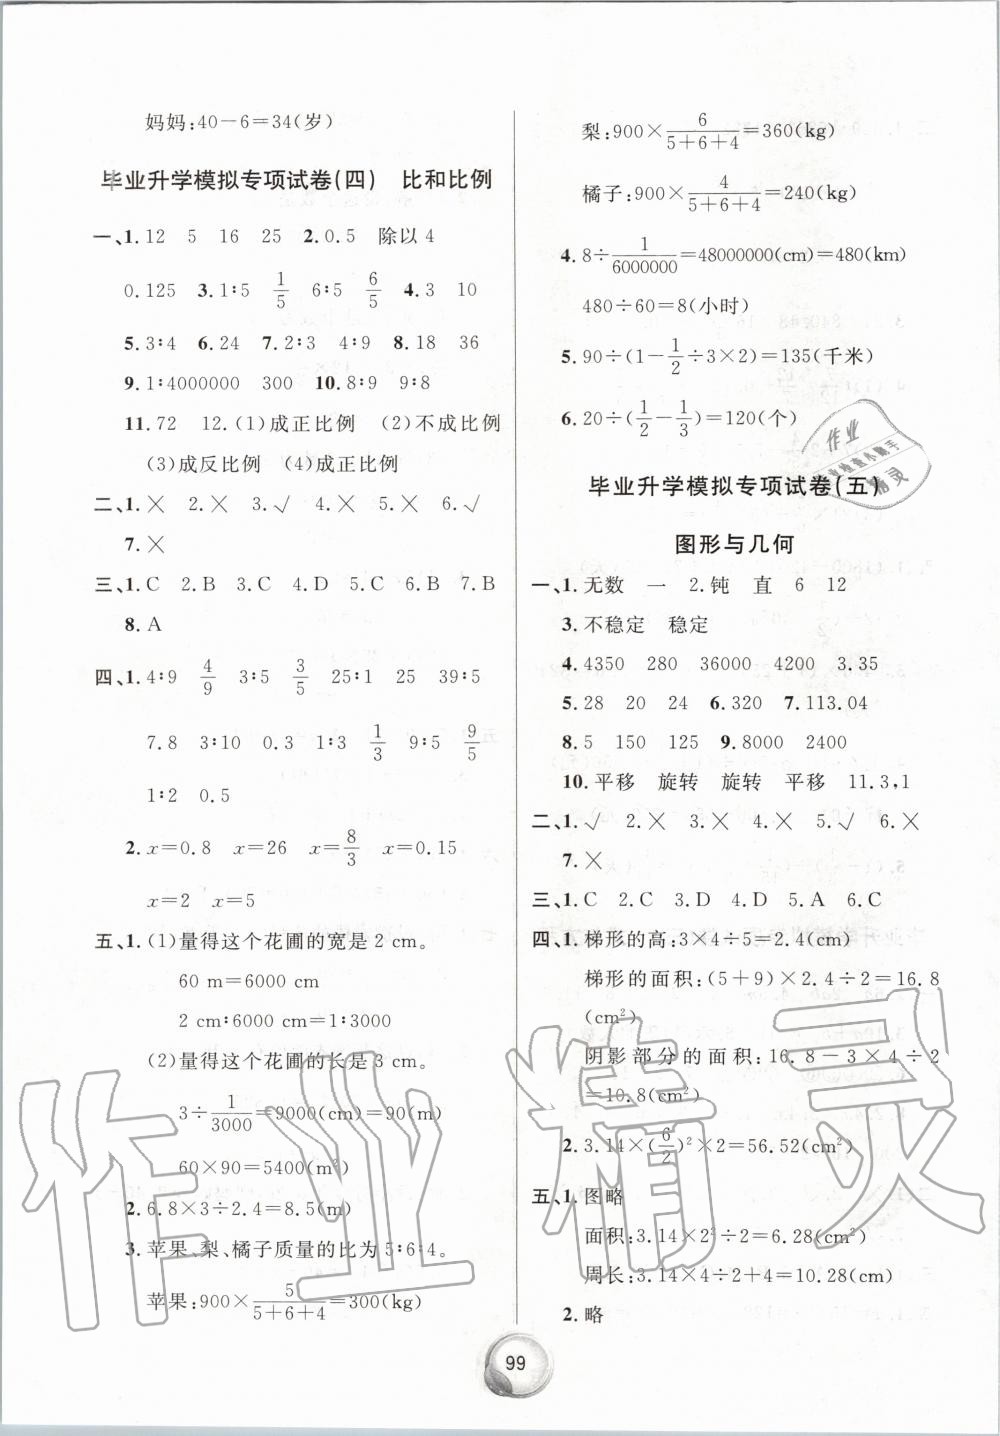 妈妈:40－6＝34(岁)
毕业升学模拟专项试卷(四)　比和比例
一、1.12　5　16　25　2.0.5　除以4
0.125　3.1∶5　1/5　6∶5　6/5　4.3　10
5.3∶4　6.24　7.2∶3　4∶9　8.18　36
9.1∶4000000　300　10.8∶9　9∶8
11.72　12.(1)成正比例　(2)不成比例
(3)成反比例　(4)成正比例
二、1.╳　2.╳　3.√　4.╳　5.╳　6.√
7.╳
三、1.C　2.B　3.C　4.D　5.C　6.B　7.B
8.A
四、1.4∶9　4/9　3∶5　3/5　25∶1　25　39∶5
7.8　3∶10　0.3　1∶3　1/3　9∶5　9/5
1∶2　0.5
2.x＝0.8　x＝26　x＝8/3　x＝0.15
x＝2　x＝5
五、1.(1)量得这个花圃的宽是2 cm。
60 m＝6000 cm
2 cm∶6000 cm＝1∶3000
(2)量得这个花圃的长是3 cm。
3÷1/3000＝9000(cm)＝90(m)
60×90＝5400(m²)
2.6.8×3÷2.4＝8.5(m)
3.苹果、梨、橘子质量的比为5∶6∶4。
苹果:900×5/(5＋6＋4)＝300(kg)
梨:900×6/(5＋6＋4)＝360(kg)
橘子:900×4/(5＋6＋4)＝240(kg)
4.8÷1/6000000＝48000000(cm)＝480(km)
480÷60＝8(小时)
5.90÷(1－1/2÷3×2)＝135(千米)
6.20÷(1/2－1/3)＝120(个)
毕业升学模拟专项试卷(五)
图形与几何
一、1.无数　一　2.钝　直　6　12
3.不稳定　稳定
4.4350　280　36000　4200　3.35
5.28　20　24　6.320　7.113.04
8.5　150　125　9.8000　2400
10.平移　旋转　旋转　平移　11.3,1
二、1.√　2.╳　3.╳　4.╳　5.√　6.╳
7.╳
三、1.C　2.C　3.D　4.D　5.A　6.C
四、1.梯形的高:3×4÷5＝2.4(cm)
梯形的面积:(5＋9)×2.4÷2＝16.8
(cm²)
阴影部分的面积:16.8－3×4÷2
＝10.8(cm²)
2.3.14×(6/2)²×2＝56.52(cm²)
五、1.图略
面积:3.14×2²÷2＝6.28(cm²)
周长:3.14×4÷2＋4＝10.28(cm)
2.略
99
作业精灵
作业
精灵